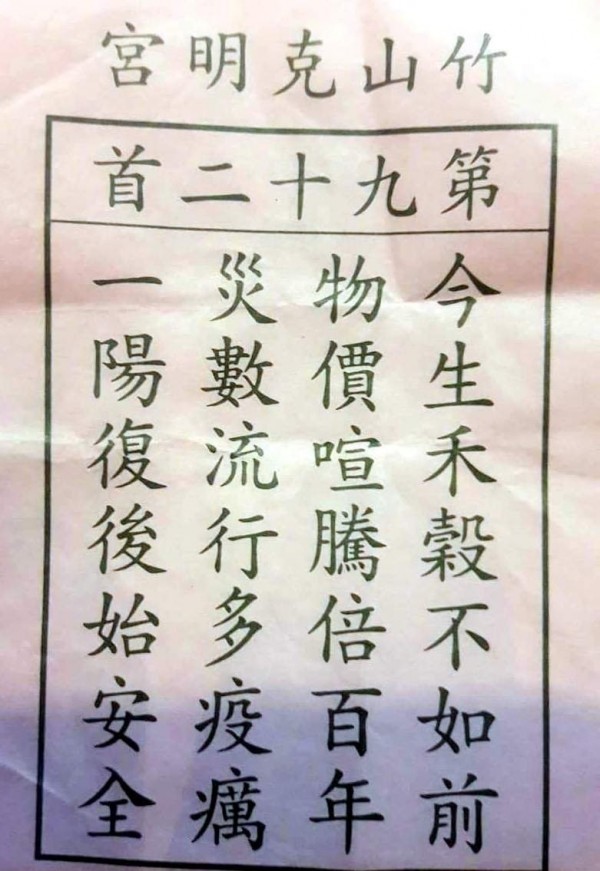 竹山克明宮
第九十二首
今生禾穀不如前
物價喧騰倍百年
災數流行多疫癘
一陽復後始安全